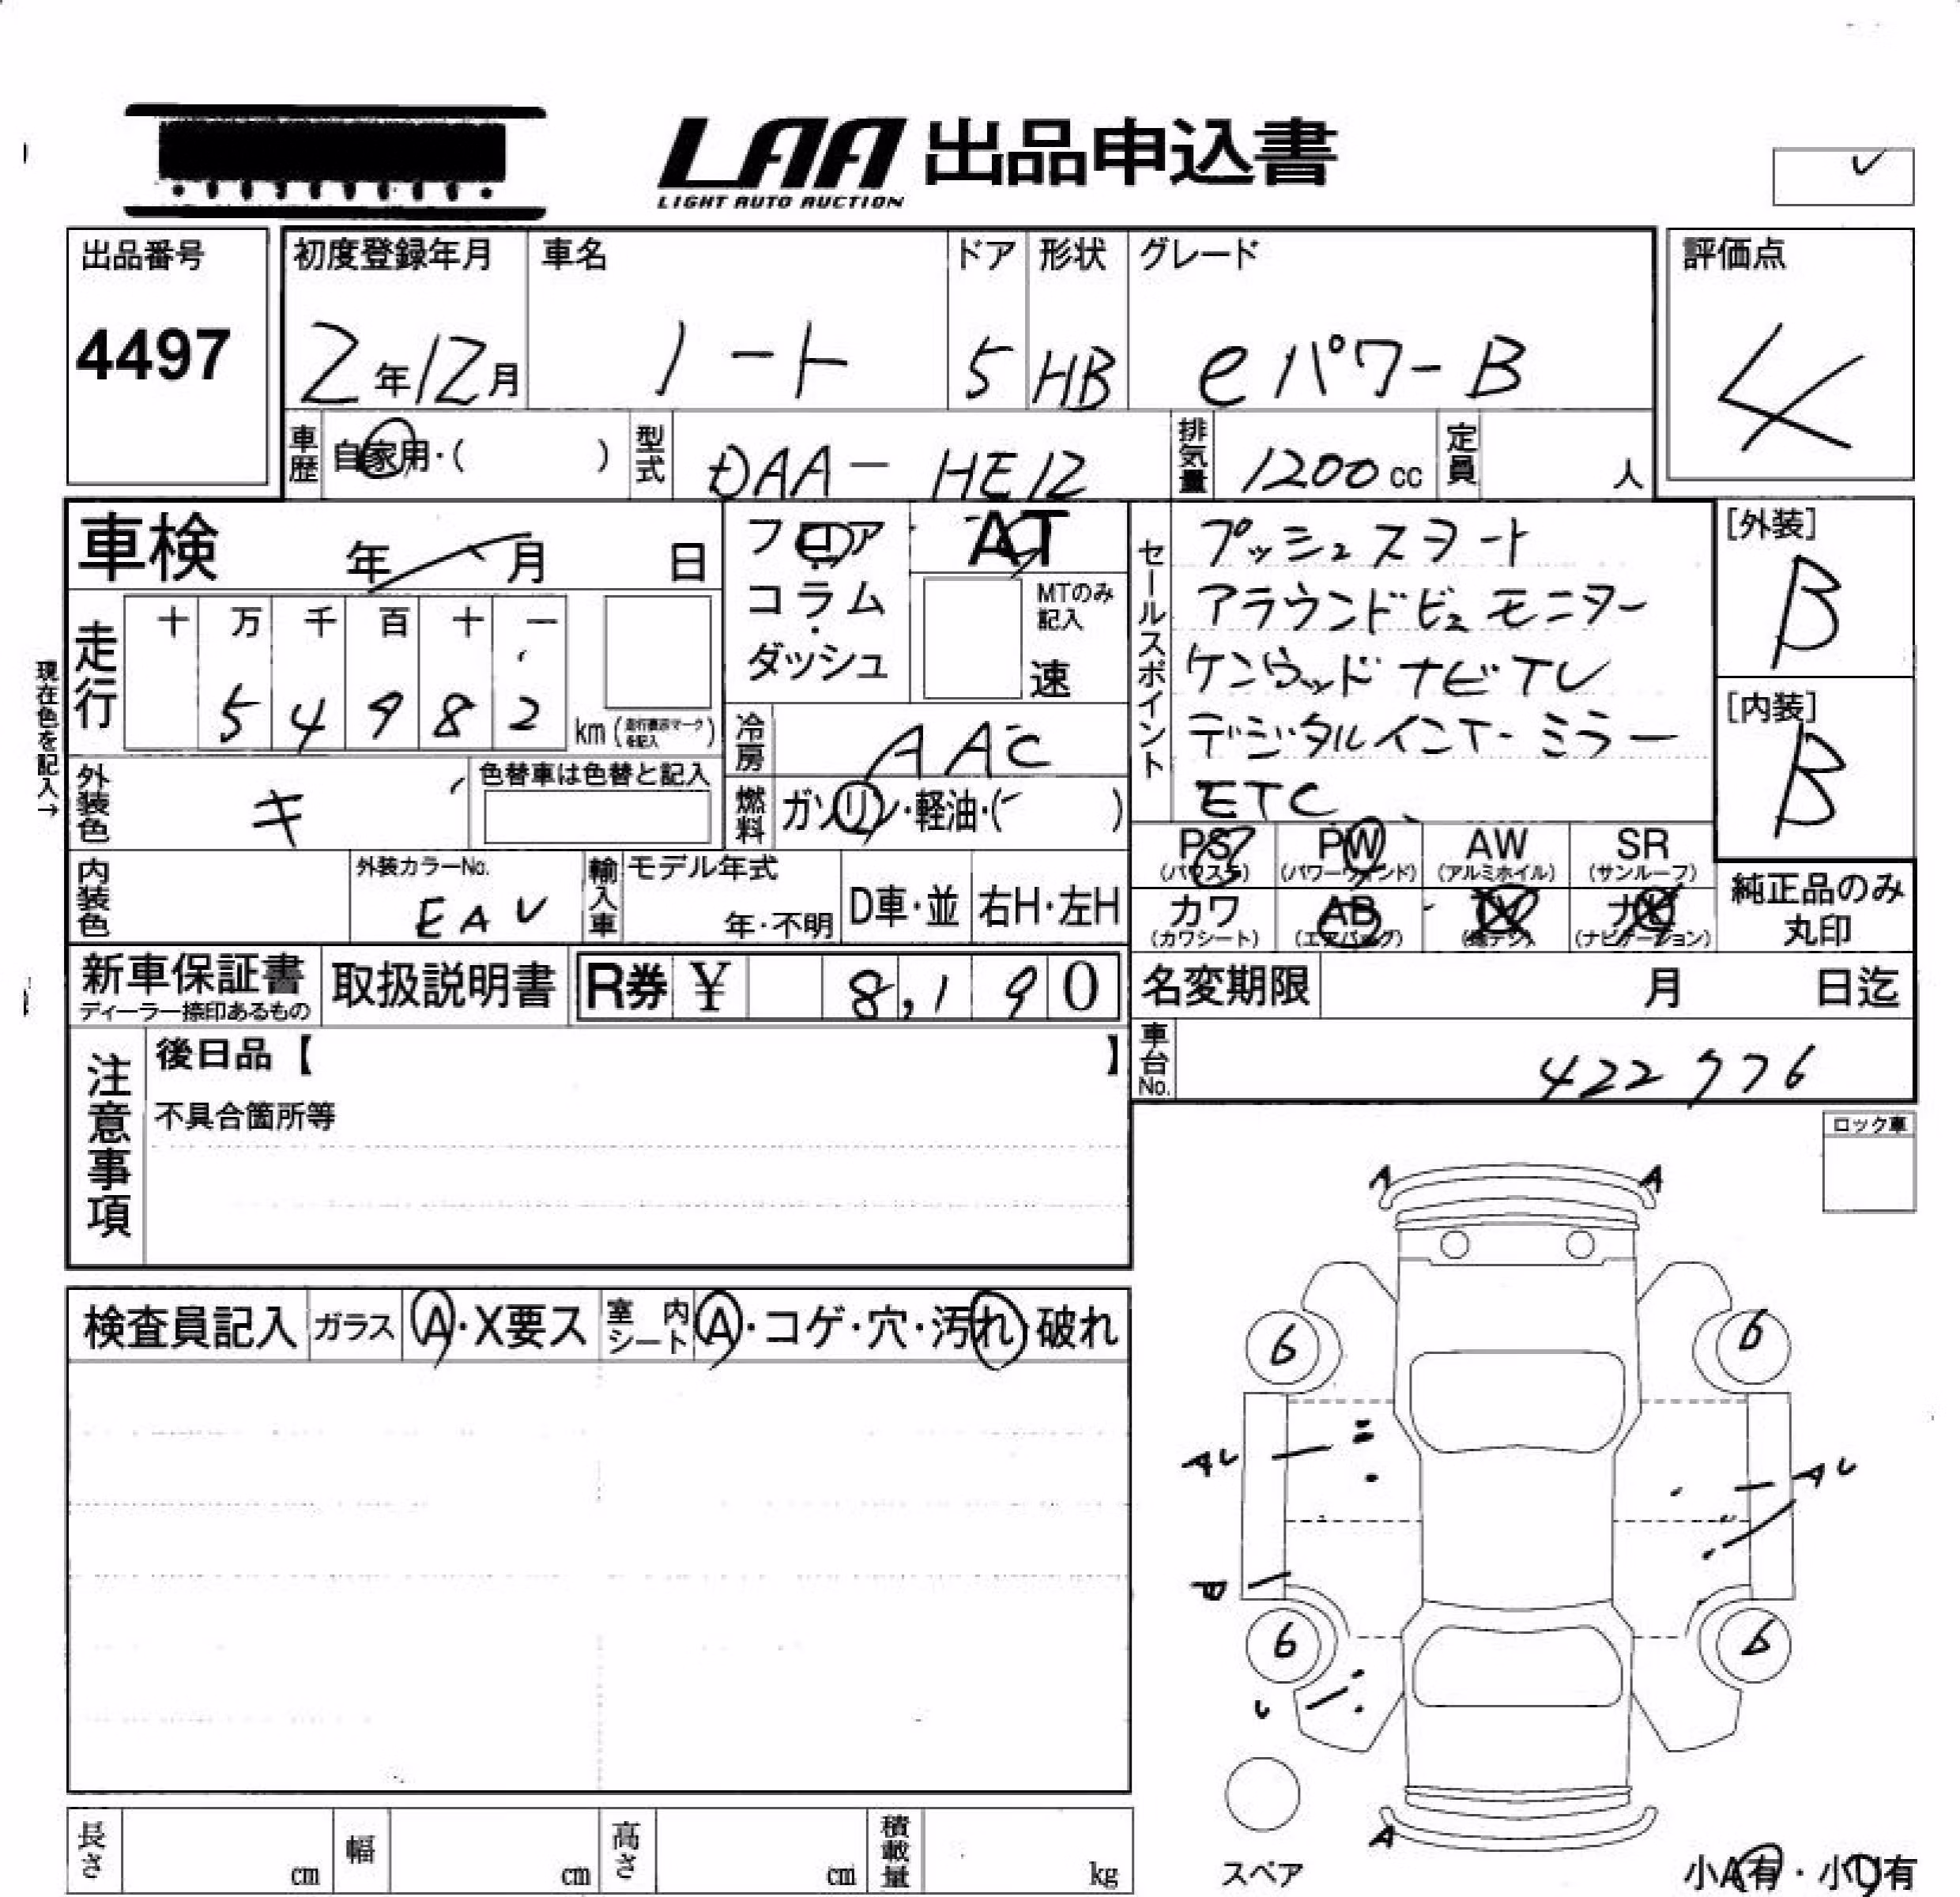 LAA 出品申込書
LIGHT AUTO AUCTION
出品番号
4497
初度登録年月
2年12月
車名
ノート
ドア
5
形状
HB
グレード
eパワーB
評価点
4
車歴 自家用・( )
型式 DAA-HE12
排気量 1200cc
定員 人
車検 年 月 日
フロア
コラム
・
ダッシュ
AT
MTのみ
記入
速
セールスポイント
プッシュスタート
アラウンドビュモニター
ケンウッドナビTV
デジタルインナーミラー
ETC
[外装]
B
[内装]
B
現在色を記入→
走行
十 万 千 百 十 一
5 4 9 8 2
km(走行表示マークを記入)
冷房 AAC
燃料 ガソリン・軽油・( )
外装色 キ
色替車は色替と記入
内装色
外装カラーNo.
EAV
輸入車
モデル年式
年・不明
D車・並
右H・左H
PS
(パワステ)
PW
(パワーウィンド)
AW
(アルミホイル)
SR
(サンルーフ)
カワ
(カワシート)
AB
(エアバッグ)
TV
ナビ
(ナビゲーション)
純正品のみ
丸印
新車保証書
ディーラー捺印あるもの
取扱説明書
R券 ¥ 8,190
名変期限 月 日迄
車台No. 422776
注意事項
後日品【 】
不具合箇所等
ロック車
検査員記入 ガラス A・X要ス 室内シート A・コゲ・穴・汚れ・破れ
A A
6 6
AL AL
6 6
A
スペア
小A有・小U有
長さ cm
幅 cm
高さ cm
積載量 kg